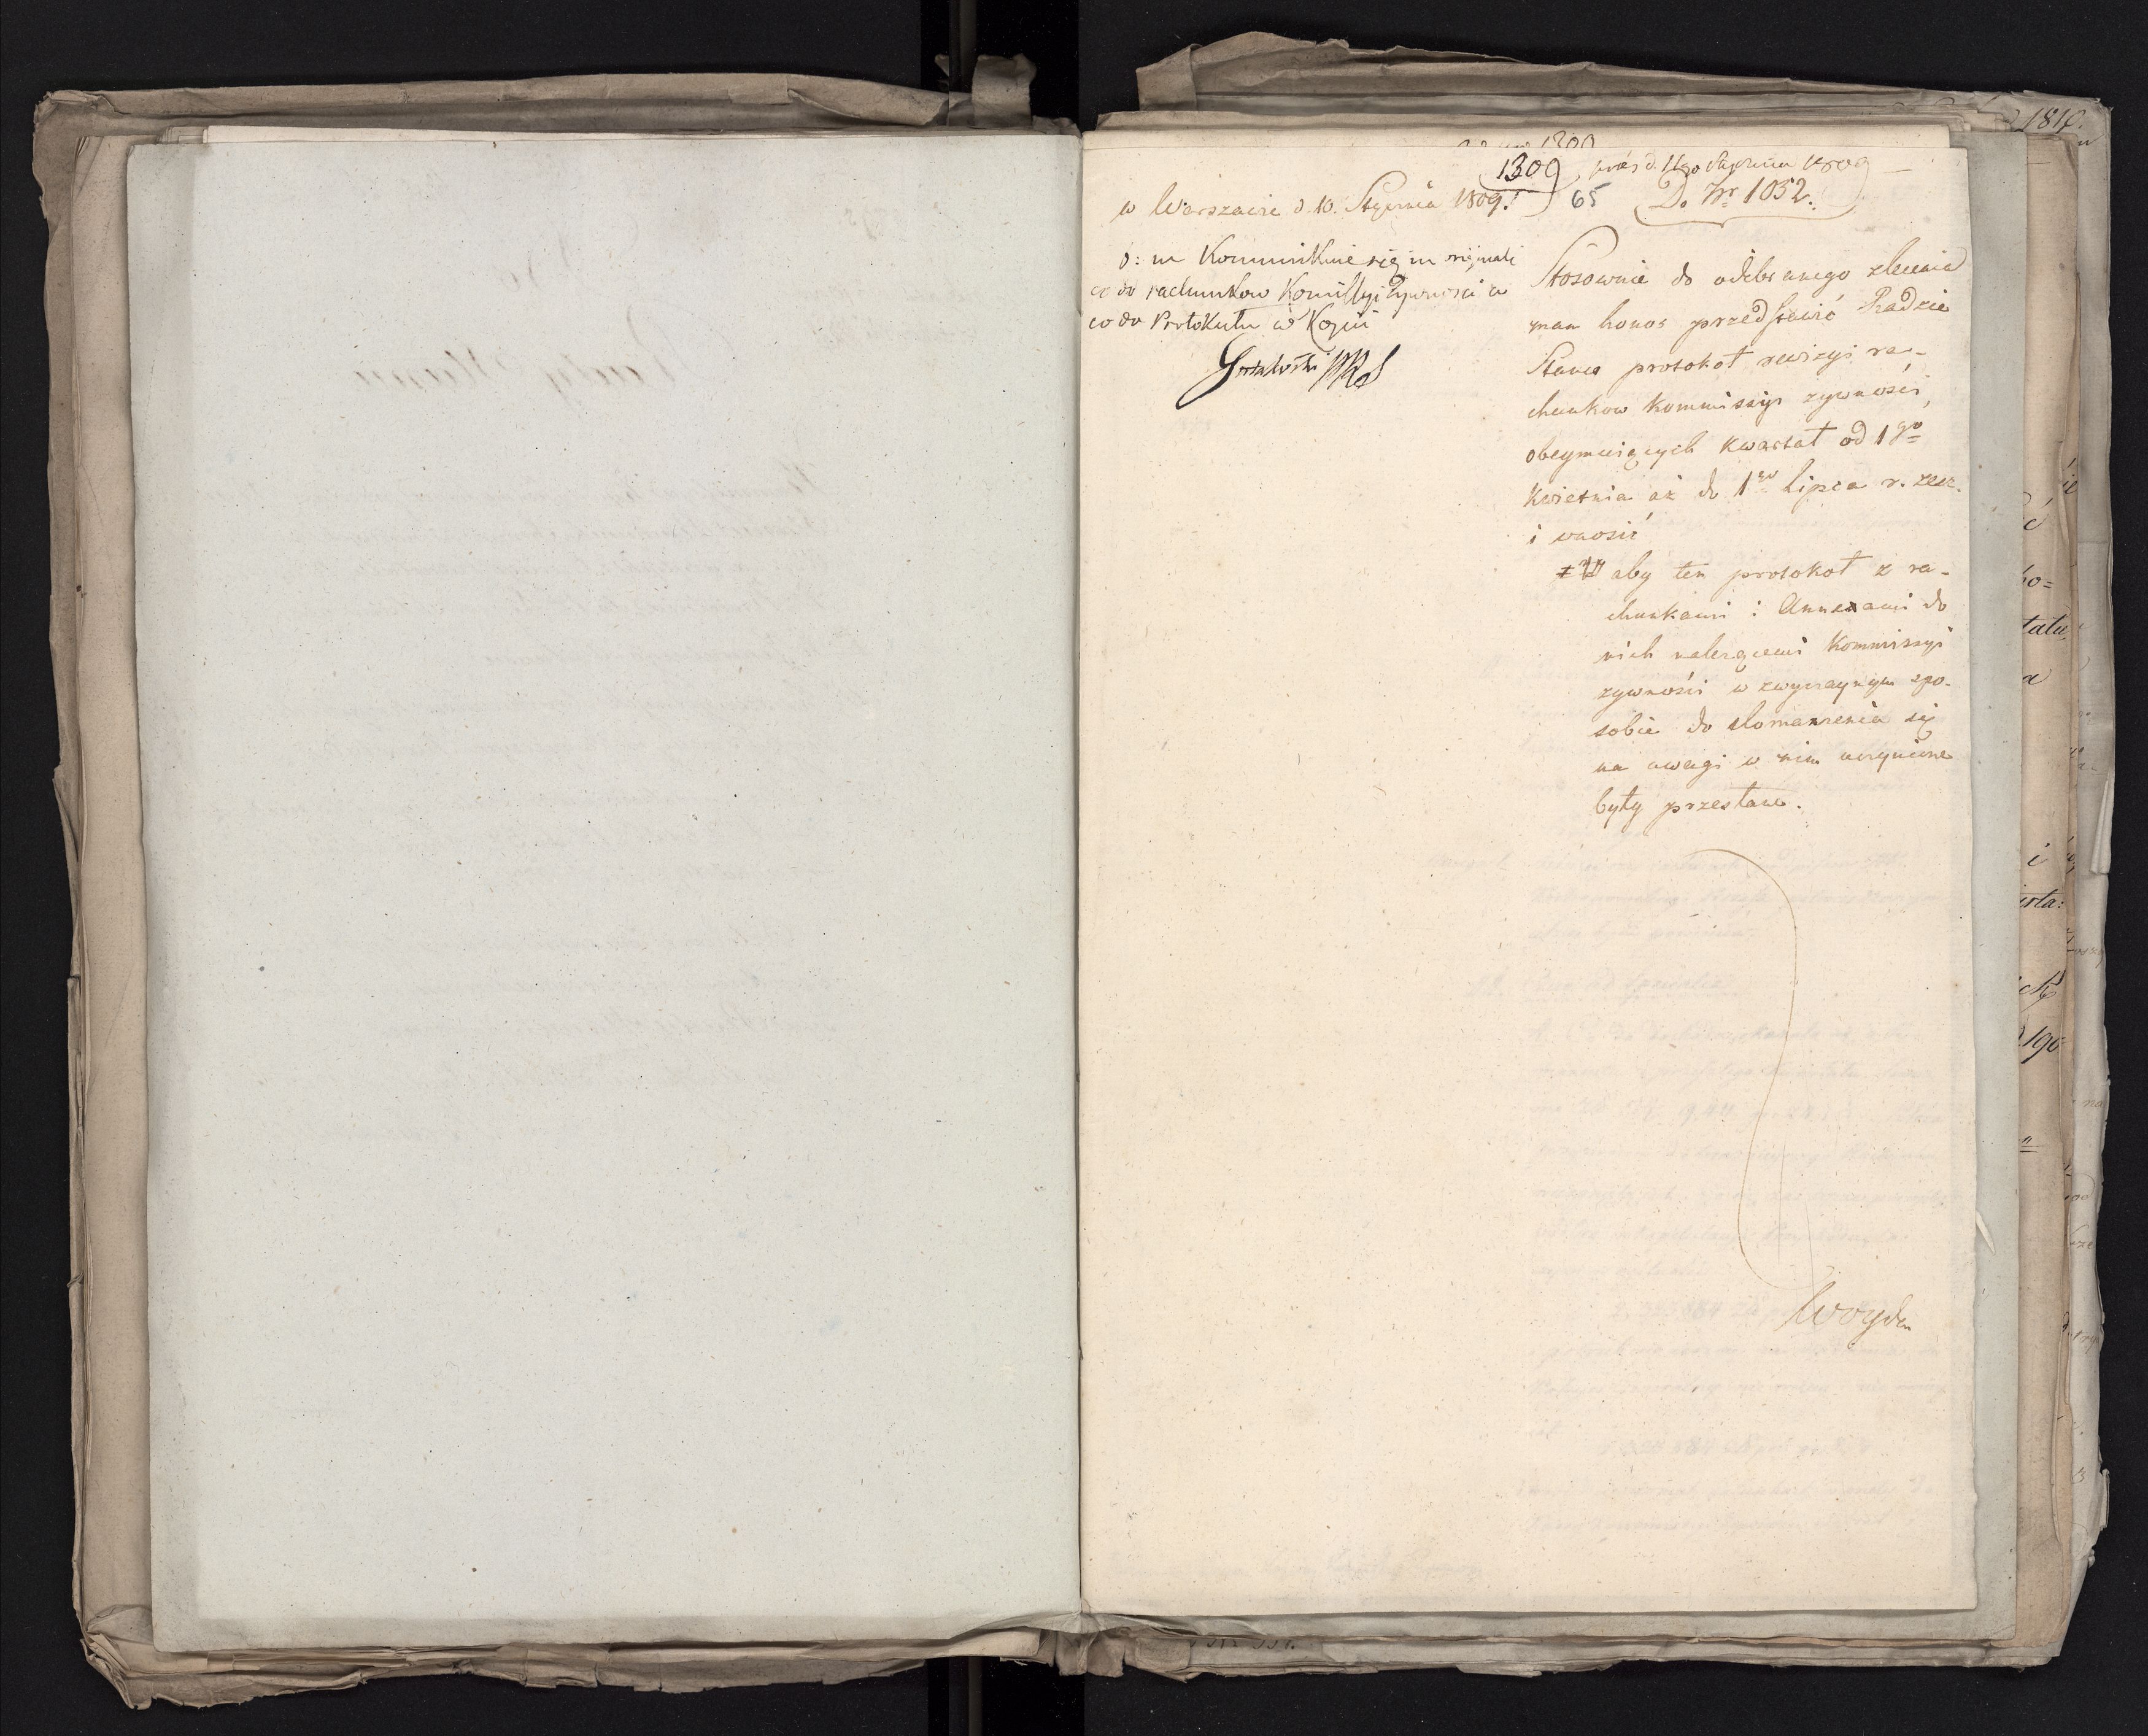 1309
d. 11go Stycznia 1809
w Warszawie d. 10. Stycznia 1809.
65
Do Nr 1052.
Kommunikuie się in originali
co do rachunkow Komissyi Żywnosci a
co do Protokułu w Kopii
Stosownie do odebranego zlecenia
mam honor przedstawić Radzie
Stanu protokoł rewizyi ra-
chunkow Kommissyi zywności,
obeymuiących Kwartał od 1go
Kwietnia aż do 1go Lipca r. zesz.
i wnosić
aby ten protokoł z ra-
chunkami i Annexami do
nich należącemi Kommissyi
zywności w zwyczaynym spo-
sobie do tłomaczenia się
na uwagi w nim uczynione
były przesłane.
Woyda
1810.